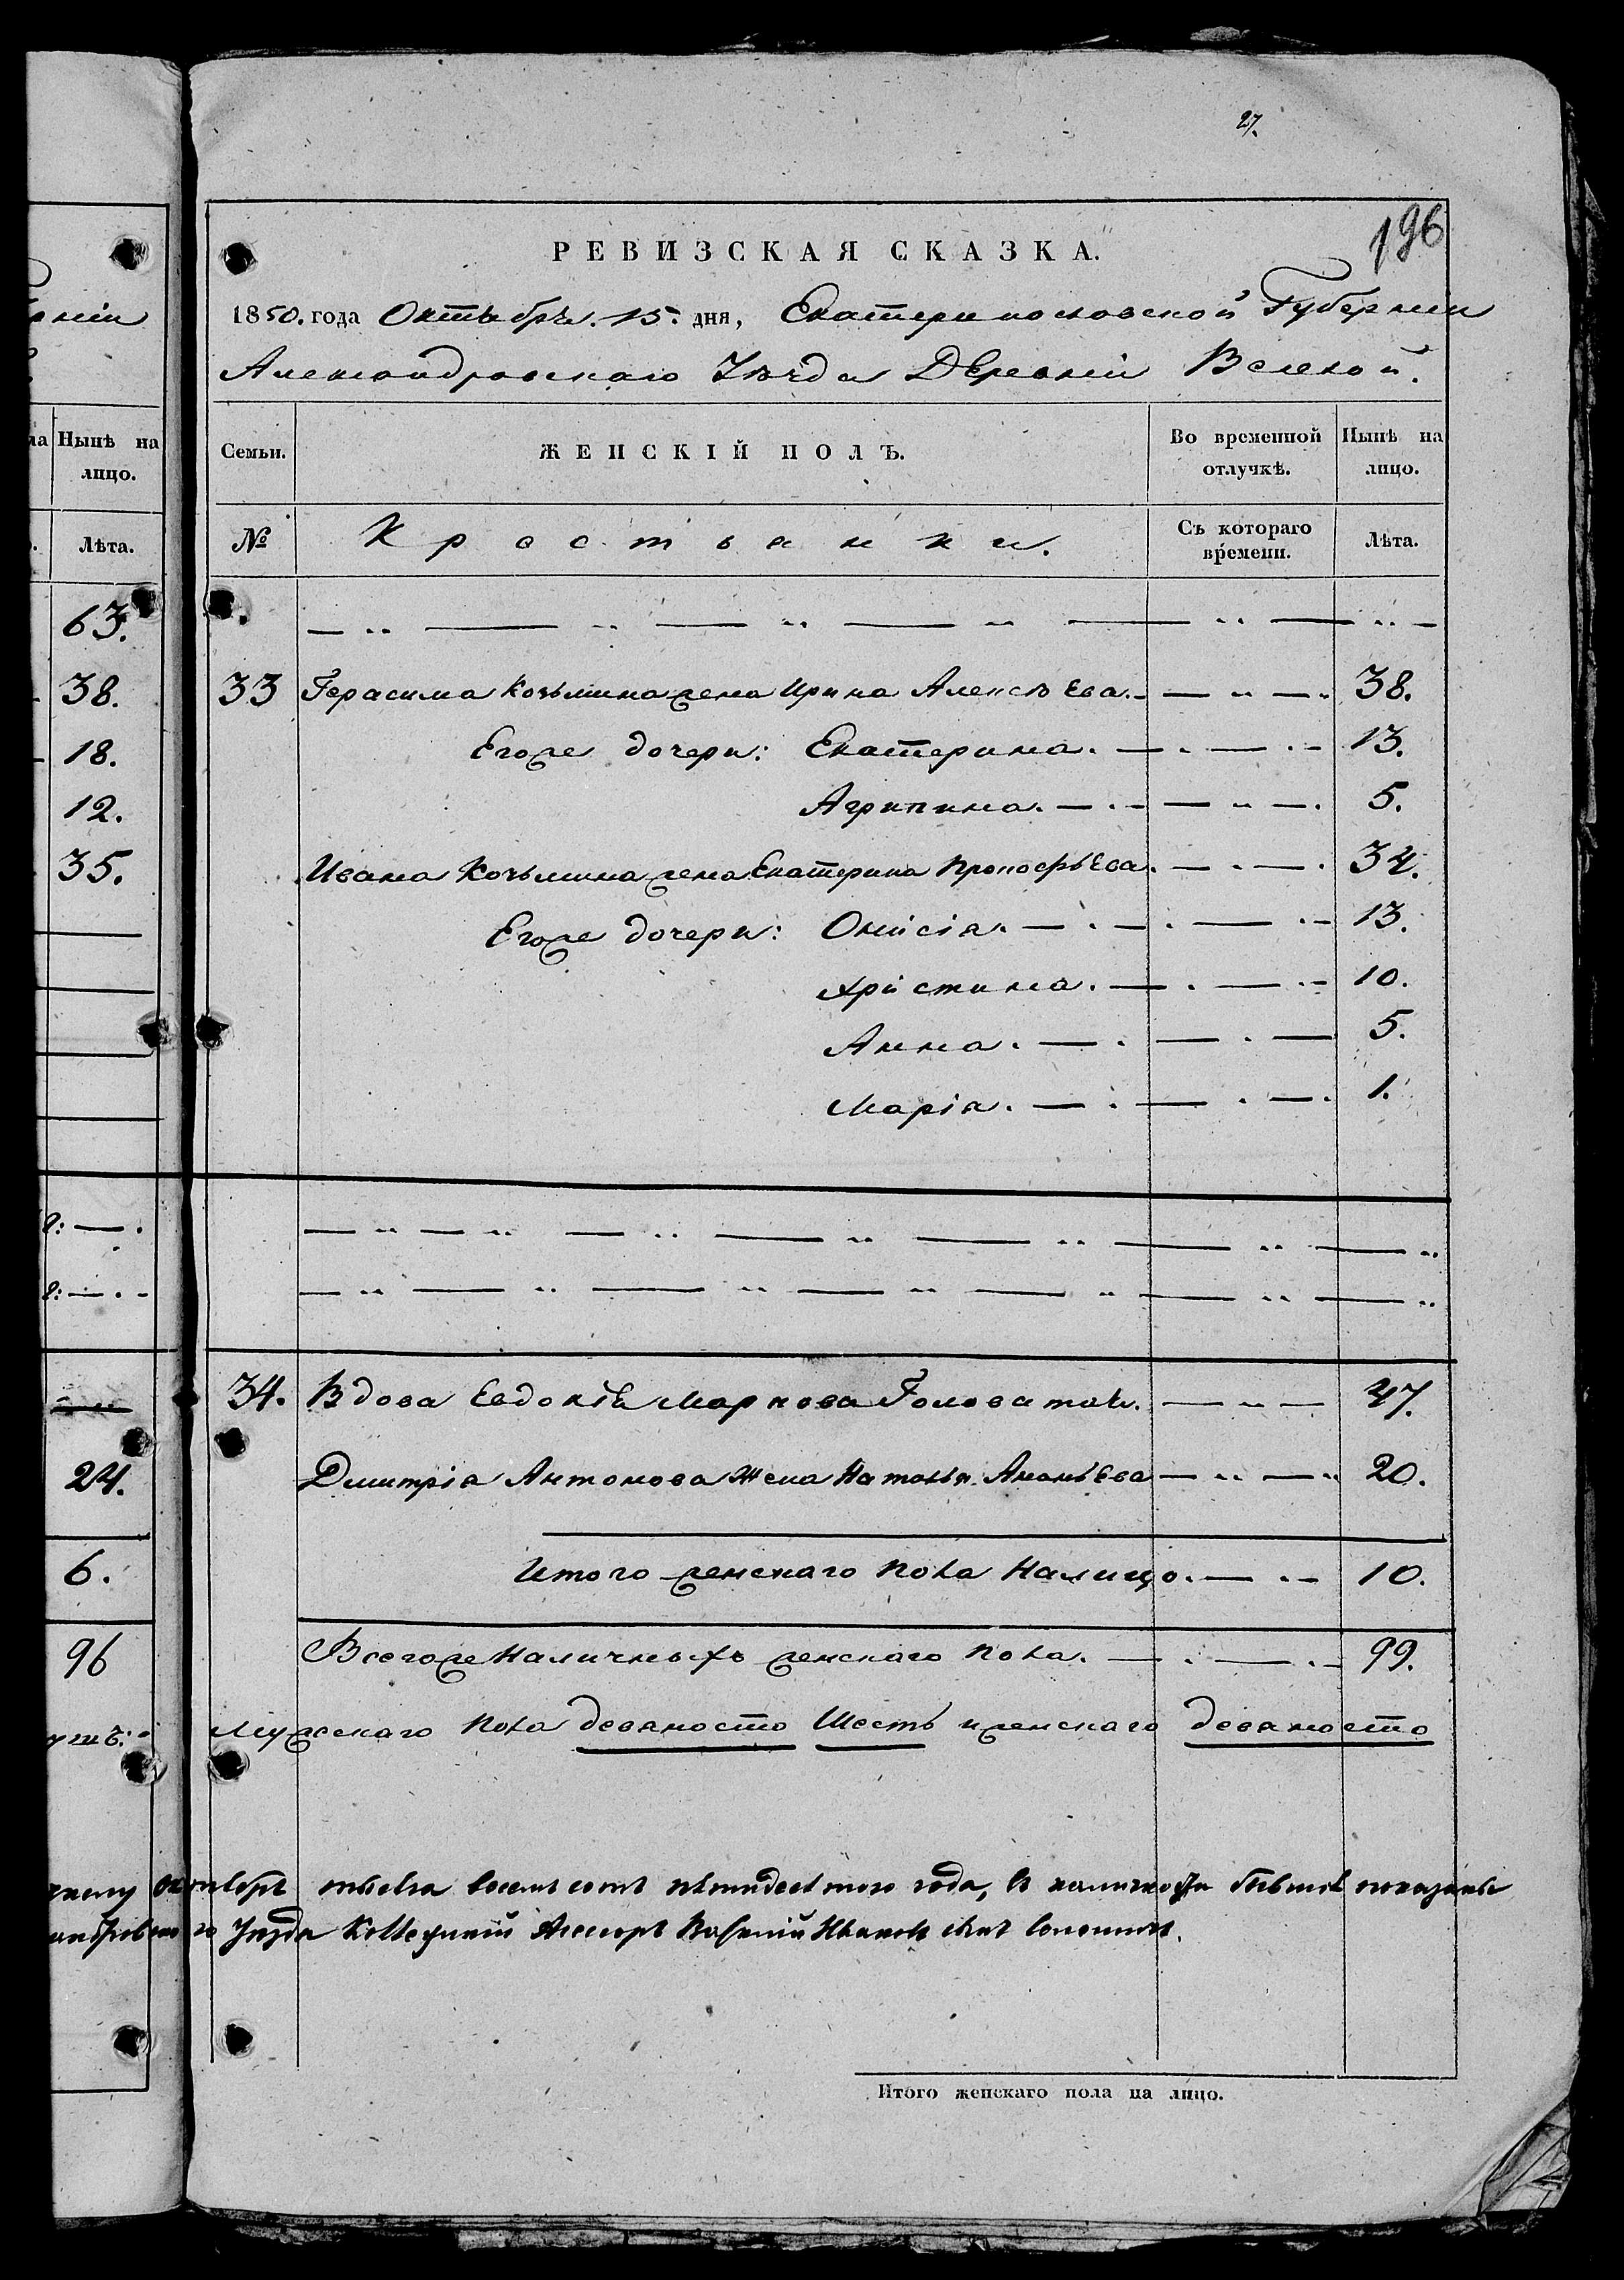 27.
196
РЕВИЗСКАЯ СКАЗКА.
1850. года Октября. 15. дня, Екатеринославской Губерніи
Александровскаго Уѣзда Деревніи Веселой.
рніи
Нынѣ на лицо.
Семьи. ЖЕНСКІЙ ПОЛЪ. Во временной отлучкѣ. Нынѣ на лицо.
Лѣта.
№ Крестьянки. Съ котораго времени. Лѣта.
63.
38. 33 Герасима Козьмина жена Ирина Алексѣева. 38.
18. Егоже дочери: Екатерина. 13.
12. Агрипина. 5.
35. Ивана Козьмина жена Екатерина Прокофьева. 34.
Егоже дочери: Онисія. 13.
Христина. 10.
Анна. 5.
Марія. 1.
34. Вдова Евдокія Маркова Головатая. 47.
24. Дмитрія Антонова жена Наталья Ананьева 20.
6. Итого женскаго пола Налицо. 10.
96 Всегоже Наличныхъ женскаго пола. 99.
Мужескаго пола девяносто Шесть и женскаго девяносто
Октября тысяча восемь сотъ пятидесятого года, въ наличности бывшія показаны
Уѣзда Коллежскій Ассесоръ Иванов сынъ
Итого женскаго пола на лицо.